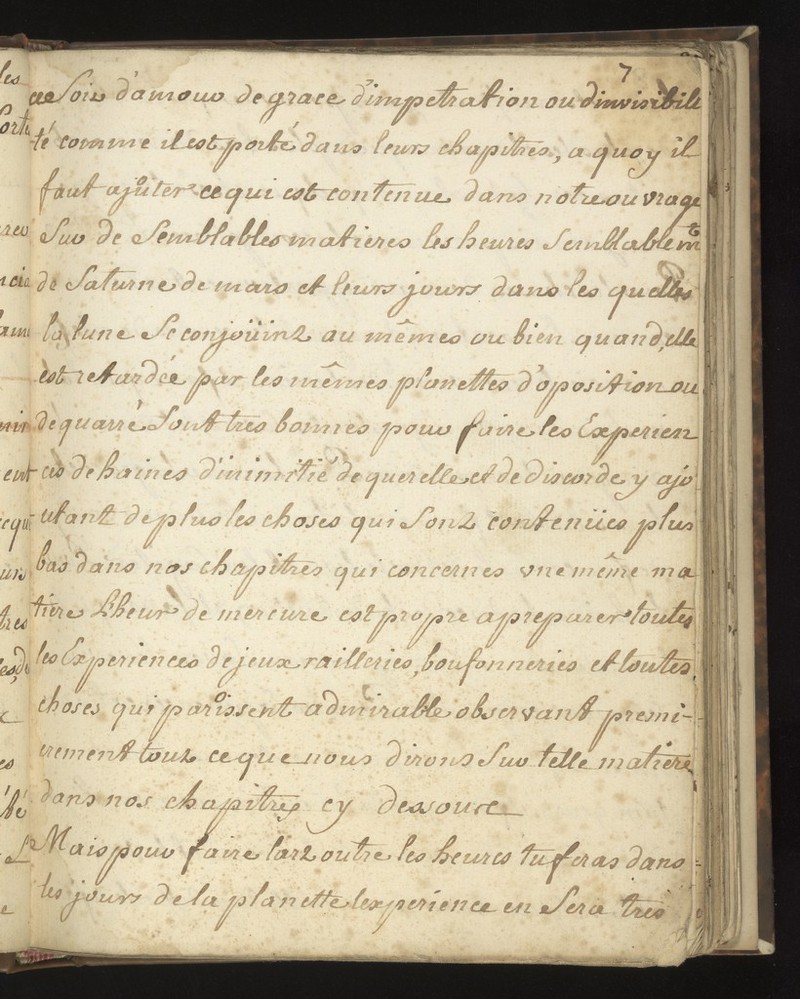 7
ce Soit d'amour de grace d'impetration ou d'invisibili
té comme il est porté dans leurs chapitres, a quoy il
faut ajoûter ce qui est contenue dans notre ouvrage
Sur de Semblables matieres les heures Semblablemt
de Saturne de mars et leurs jours dans les quelles
la lune Se conjoüint au mêmes ou bien quand, elle
est retardée par les mêmes planettes d'oposition ou
de quarré Sont tres bonnes pour faire les Experien
ces de haines d'inimitié de querelle et de discorde y ajo
utant de plus les choses qui Sont contenües plus
bas dans nos chapitres qui concernes vne même ma
tiere L'heur de mercure est propre a preparer toutes
les Experiences de jeux railleries, boufonneries et toutes
choses qui paroissent admirable observant premi-
erement tout ce que nous dirons Sur telle matiere
dans nos chapitres cy dessoure
Mais pour faire lart outre les heures tu feras dans
les jours de la planette lexperience en Sera tres